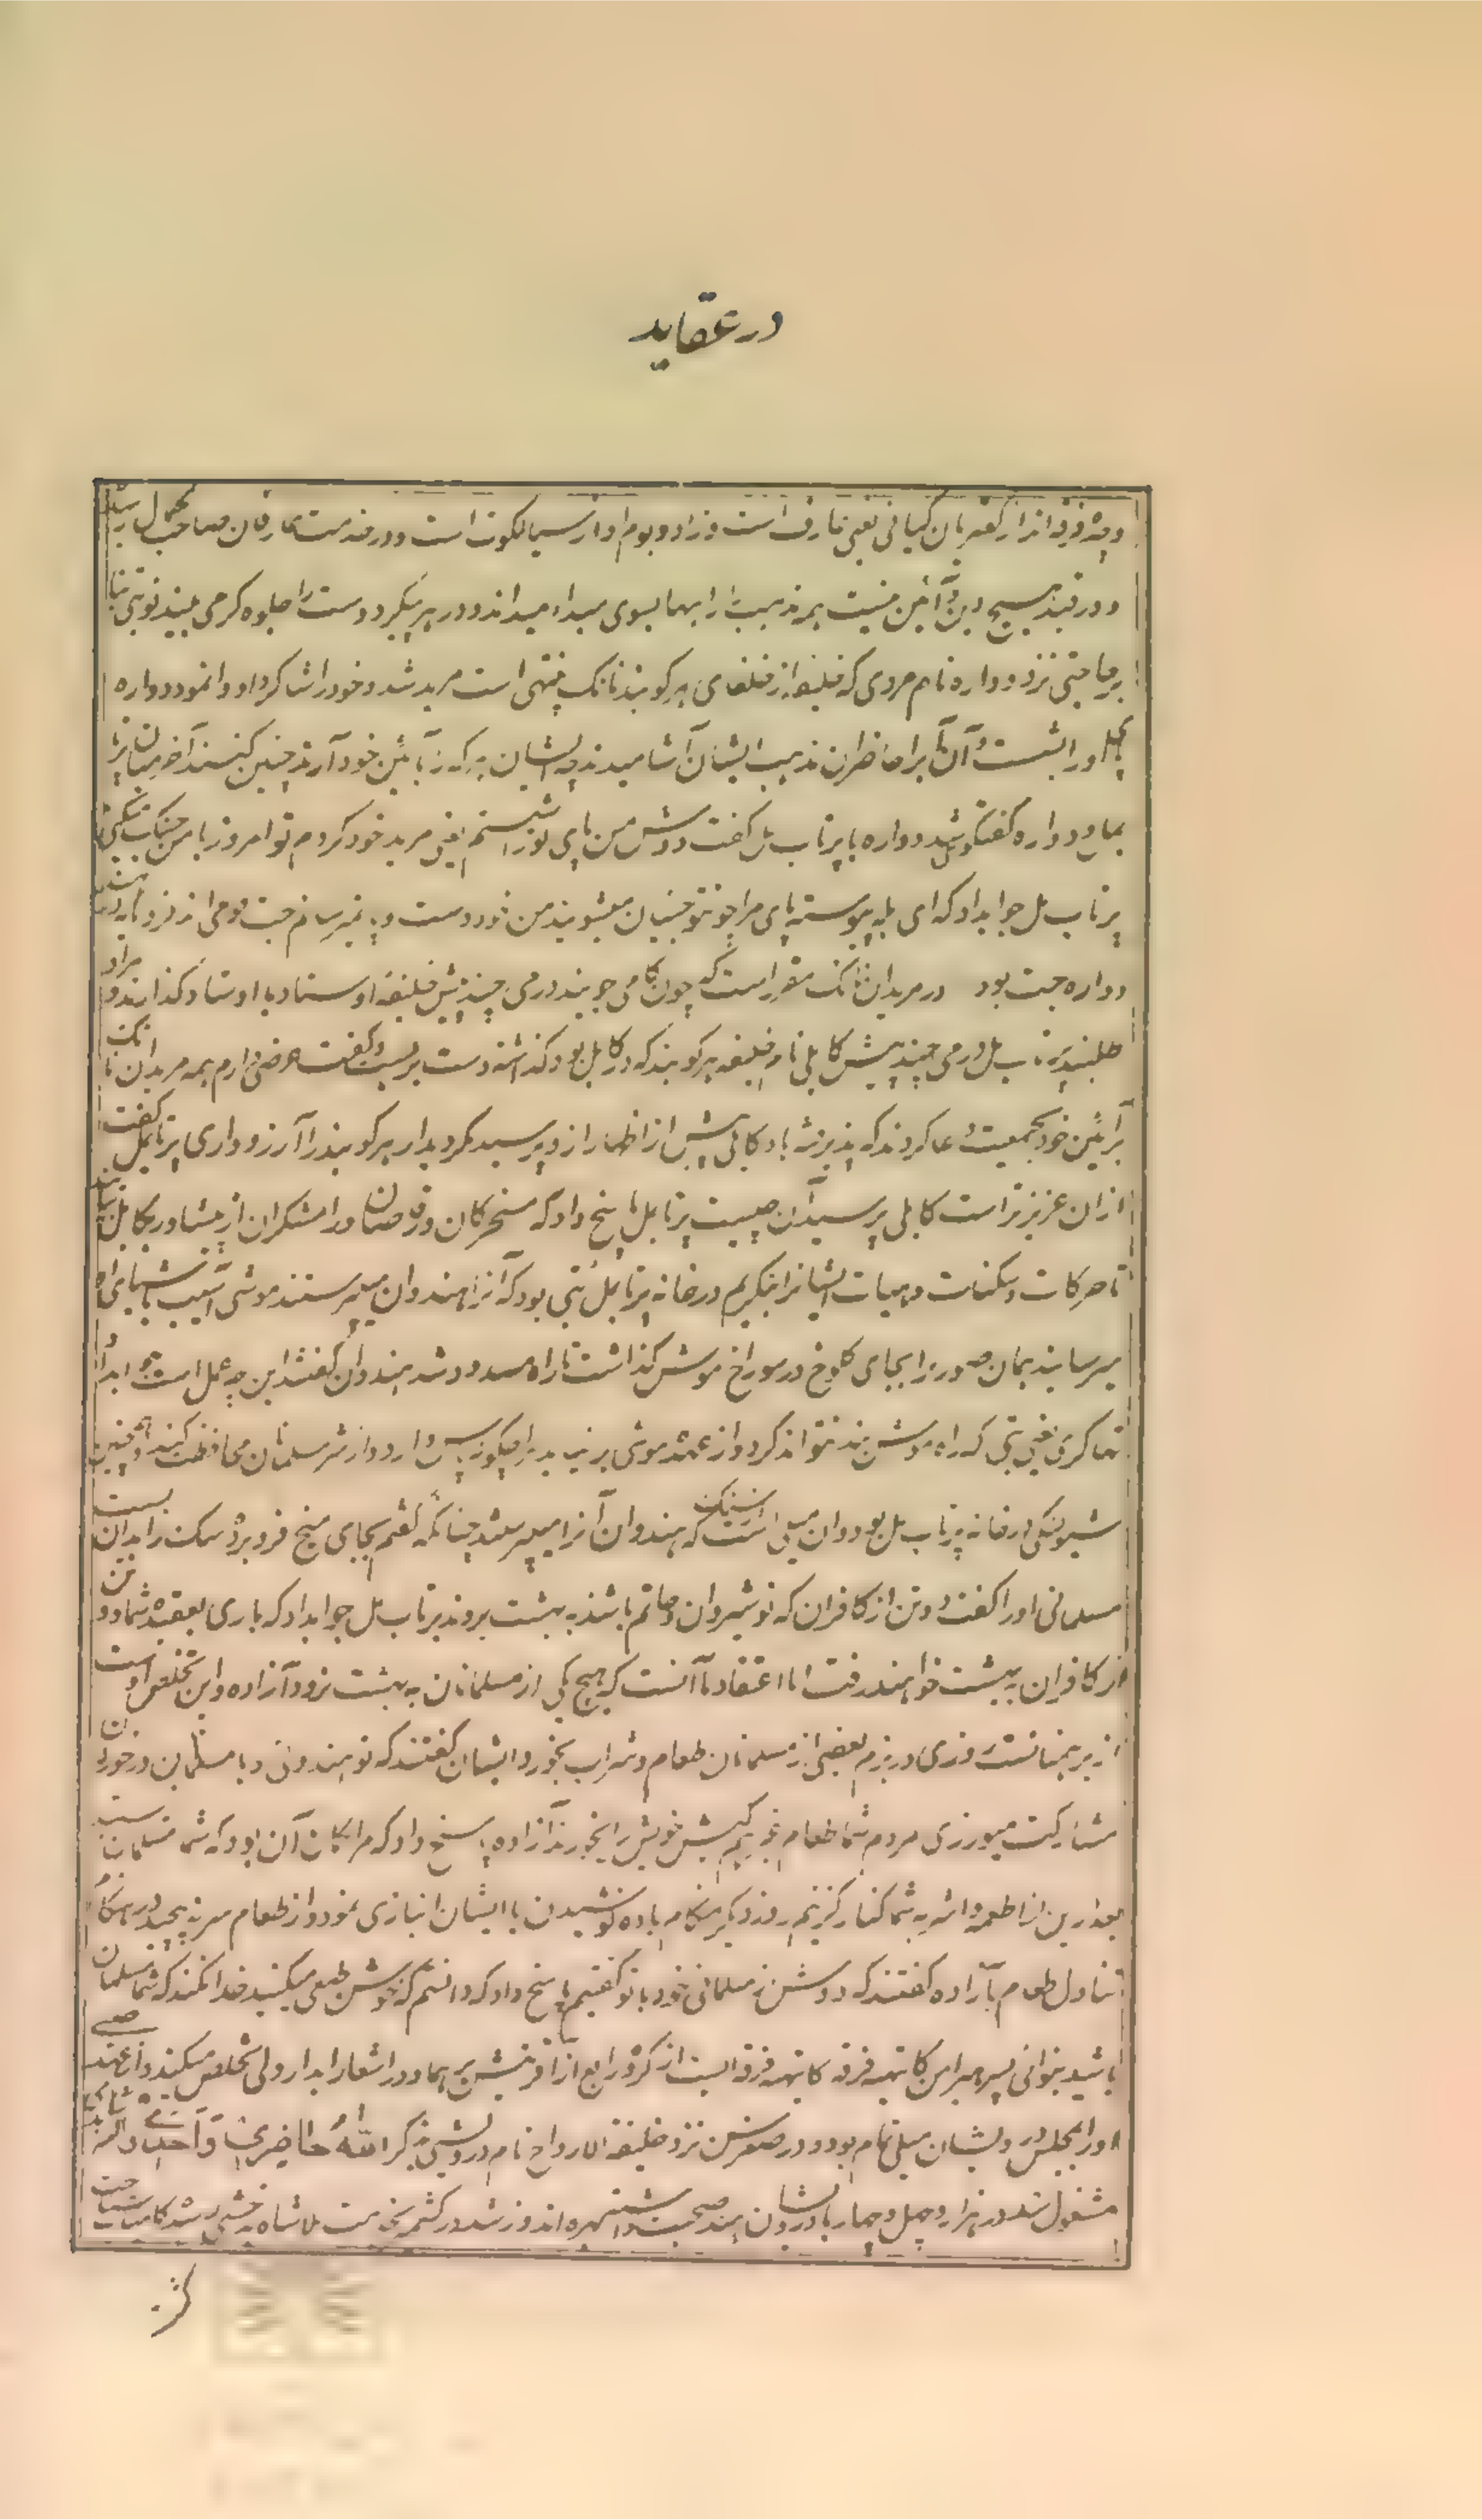 در عقاید
و چده فرقه اند از کهتریان گیانی یعنی عارف است و زاد و بوم او از سیالکوت است و در خدمت عارفان صاحب کمال رسیده
و در قید هیچ دین و آئین نیست همه مذهب را راهها بسوی مبداء میداند و در هر پیکر دوست را جلوه گر می بیند نوبتی بنا
بر حاجتی نزد دواره نام مردی که خلیفه از خلفای هرکوبند نانک پنتهی است مرید شد و خود را شاگرد او وانمود دواره
پای او را بشست و آن آب را حاضران مذهب ایشان آشامیدند چه ایشان هر که را بآئین خود آرند چنین کنند آخر میان پرتا
بمل و دواره گفتگو شد دواره با پرتاب مل گفت دوش من پای ترا شستم یعنی مرید خود کردم تو امروز با من جنگ میکنی
پرتاب مل جواب داد که ای ابله پیوسته پای مرا چو تو جتیان میشویند من خود دست و پا نمیرسانم جت قومی اند فرومایه
دواره جت بود در مریدان نانک مقرر است که چون کامی جویند درمی چند پیش خلیفه او ستاد یا اوستاد گذارند و مراد
طلبند پرتاب مل درمی چند پیش کابلی نام خلیفه هرکوبند که در کابل بود گذاشته دست بربست و گفت عرضی دارم همه مریدان نانک
بر آئین خود بجمعیت دعا کردند که پذیرفته باد کابلی پیش از اظهار ازو پرسید مگر دیدار هرکوبند را آرزو داری پرتابمل گفت
ازان عزیزتر است کابلی پرسید آن چیست پرتابمل پاسخ داد که مسخرگان و رقاصان و رامشگران از پشاور بکابل بیایند
تا حرکات و سکنات و هیات ایشانرا بنگریم در خانه پرتابمل بتی بود که آنرا هندوان میپرستند موشی آسیب باشیای او
میرسانید همان صورت را بجای کلوخ در سوراخ موش گذاشت تا راه مسدود شد هندوان گفتند این چه عمل است جواب داد
تها کری یعنی بتی که راه موش بند نتواند کرد و از عهده موشی بر نیاید مرا چگونه پاس دارد و از شر مسلمانان محافظت کند و همچنین
شیولنگی در خانه پرتاب مل بود و آن میلی است سنگین که هندوان آنرا میپرستند چنانکه گفتم بجای میخ فرو برد و سگ را بدان بست
مسلمانی او را گفت دو تن از کافران که نوشیروان و حاتم باشند به بهشت بروند پرتاب مل جواب داد که باری بعقیده شما دو تن
از کافران به بهشت خواهند رفت اما اعتقاد ما آنست که هیچ یکی از مسلمانان به بهشت نرود آزاده و این تخلص اوست
از برهمنانست روزی در بزم بعضی از مسلمانان طعام و شراب بخورد ایشان گفتند که تو هندوئی و با مسلمین در خوردن
مشارکت میورزی مردم شما طعام غیر هم کیش خویش را نخورند آزاده پاسخ داد که مرا گمان آن نبود که شما مسلمانست
بعد ازین از اطعمه و اشربه شما کنار گزینم روز دیگر هنگام باده نوشیدن با ایشان انبازی نمود و از طعام سر نه پیچید در هنگام
تناول طعام بآزاده گفتند که دوش ز مسلمانی خود با تو گفتیم پاسخ داد که دانستم که خوش طبعی میکنید خدا نکند که شما مسلمان
باشید بنوالی پسر هیرامن کایتهه فرقه کایتهه فرقه ایست از گروه رابع از آفرینش برهما و در اشعار ابدار ولی تخلص میکند و از عهد صبی
او را بمجلس درویشان میلی تمام بود و در صغر سن نزد خلیفه الارواح نام درویشی بذکر الله حاضری
مشغول شد در هزار و چهل و چهار با درویشان هند صحبت داشته بهره اندوز شد در کشمیر بخدمت ملاشاه بدخشی رسید کامیاب